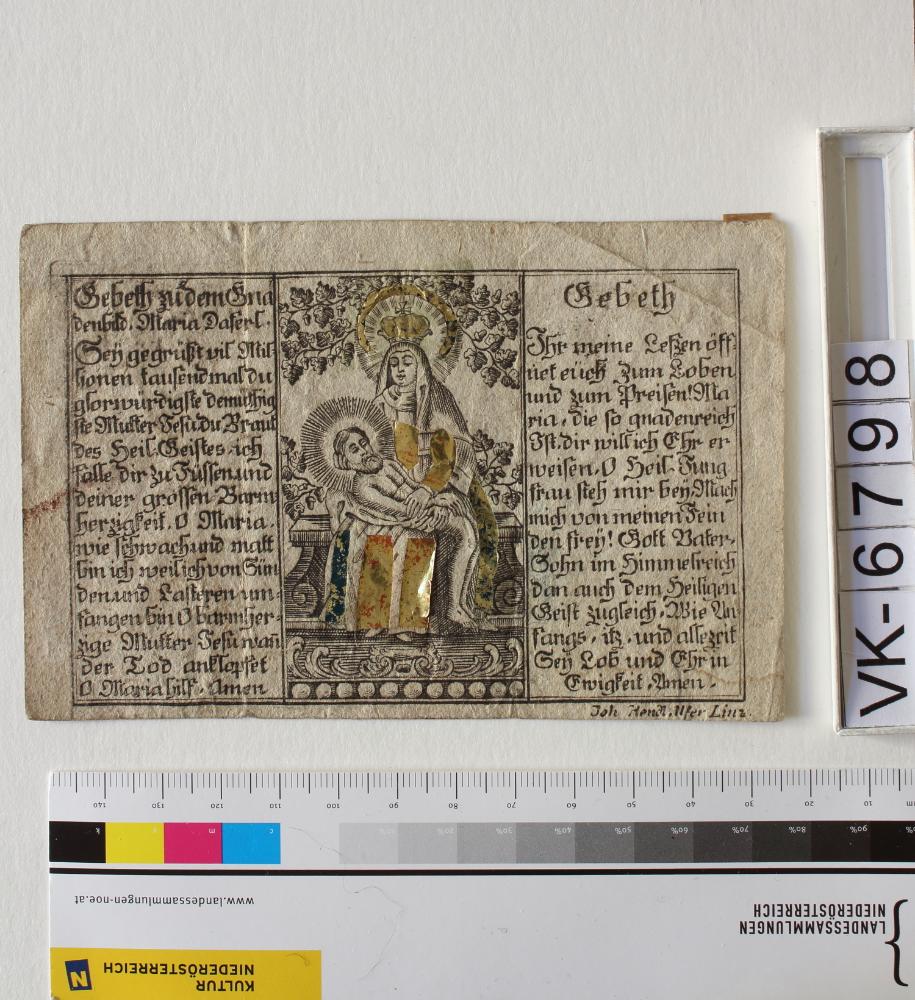 Gebeth zu dem Gna
denbild. Maria Daferl.
Sey gegrüßt vil Mil-
lionen tausendmal du
glorwürdigste demüthig
ste Mutter Jesu du Braut
des Heil. Geistes. ich
falle dir zu Füssen. und
deiner grossen Barm
herzigkeit. O Maria.
wie schwach und matt
bin ich weil ich von Sün
den und Lasteren um-
fangen bin O barmher-
zige Mutter Jesu wañ
der Tod anklopfet
O Maria hilf. Amen
Gebeth
Ihr meine Lefzen öff-
net eüch zum Loben
und zum Preisen! Ma
ria, die so gnadenreich
Ist. dir will ich Ehr er
weisen. O Heil. Jung
frau steh mir bey. Mach
mich von meinen Fein
den frey! Gott Vater.
Sohn im Himmelreich
dan auch dem Heiligen
Geist zugleich. Wie An
fangs, itz, und allezeit
Sey Lob und Ehr in
Ewigkeit. Amen.
Joh. Linz.
VK-6798
140 130 120 110 100 90 80 70 60 50 40 30 20 10 mm
k y m c 10% 20% 30% 40% 50% 60% 70% 80% 90% 100%
www.landessammlungen-noe.at
LANDESSAMMLUNGEN
NIEDERÖSTERREICH
KULTUR
NIEDERÖSTERREICH
N